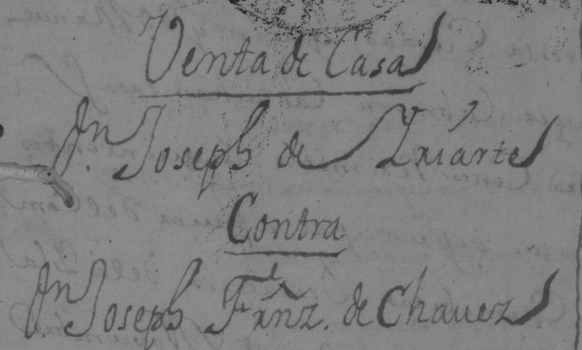 Venta de Casa
Dn. Joseph de Yriarte
Contra
Dn. Joseph Frnz. de Chavez